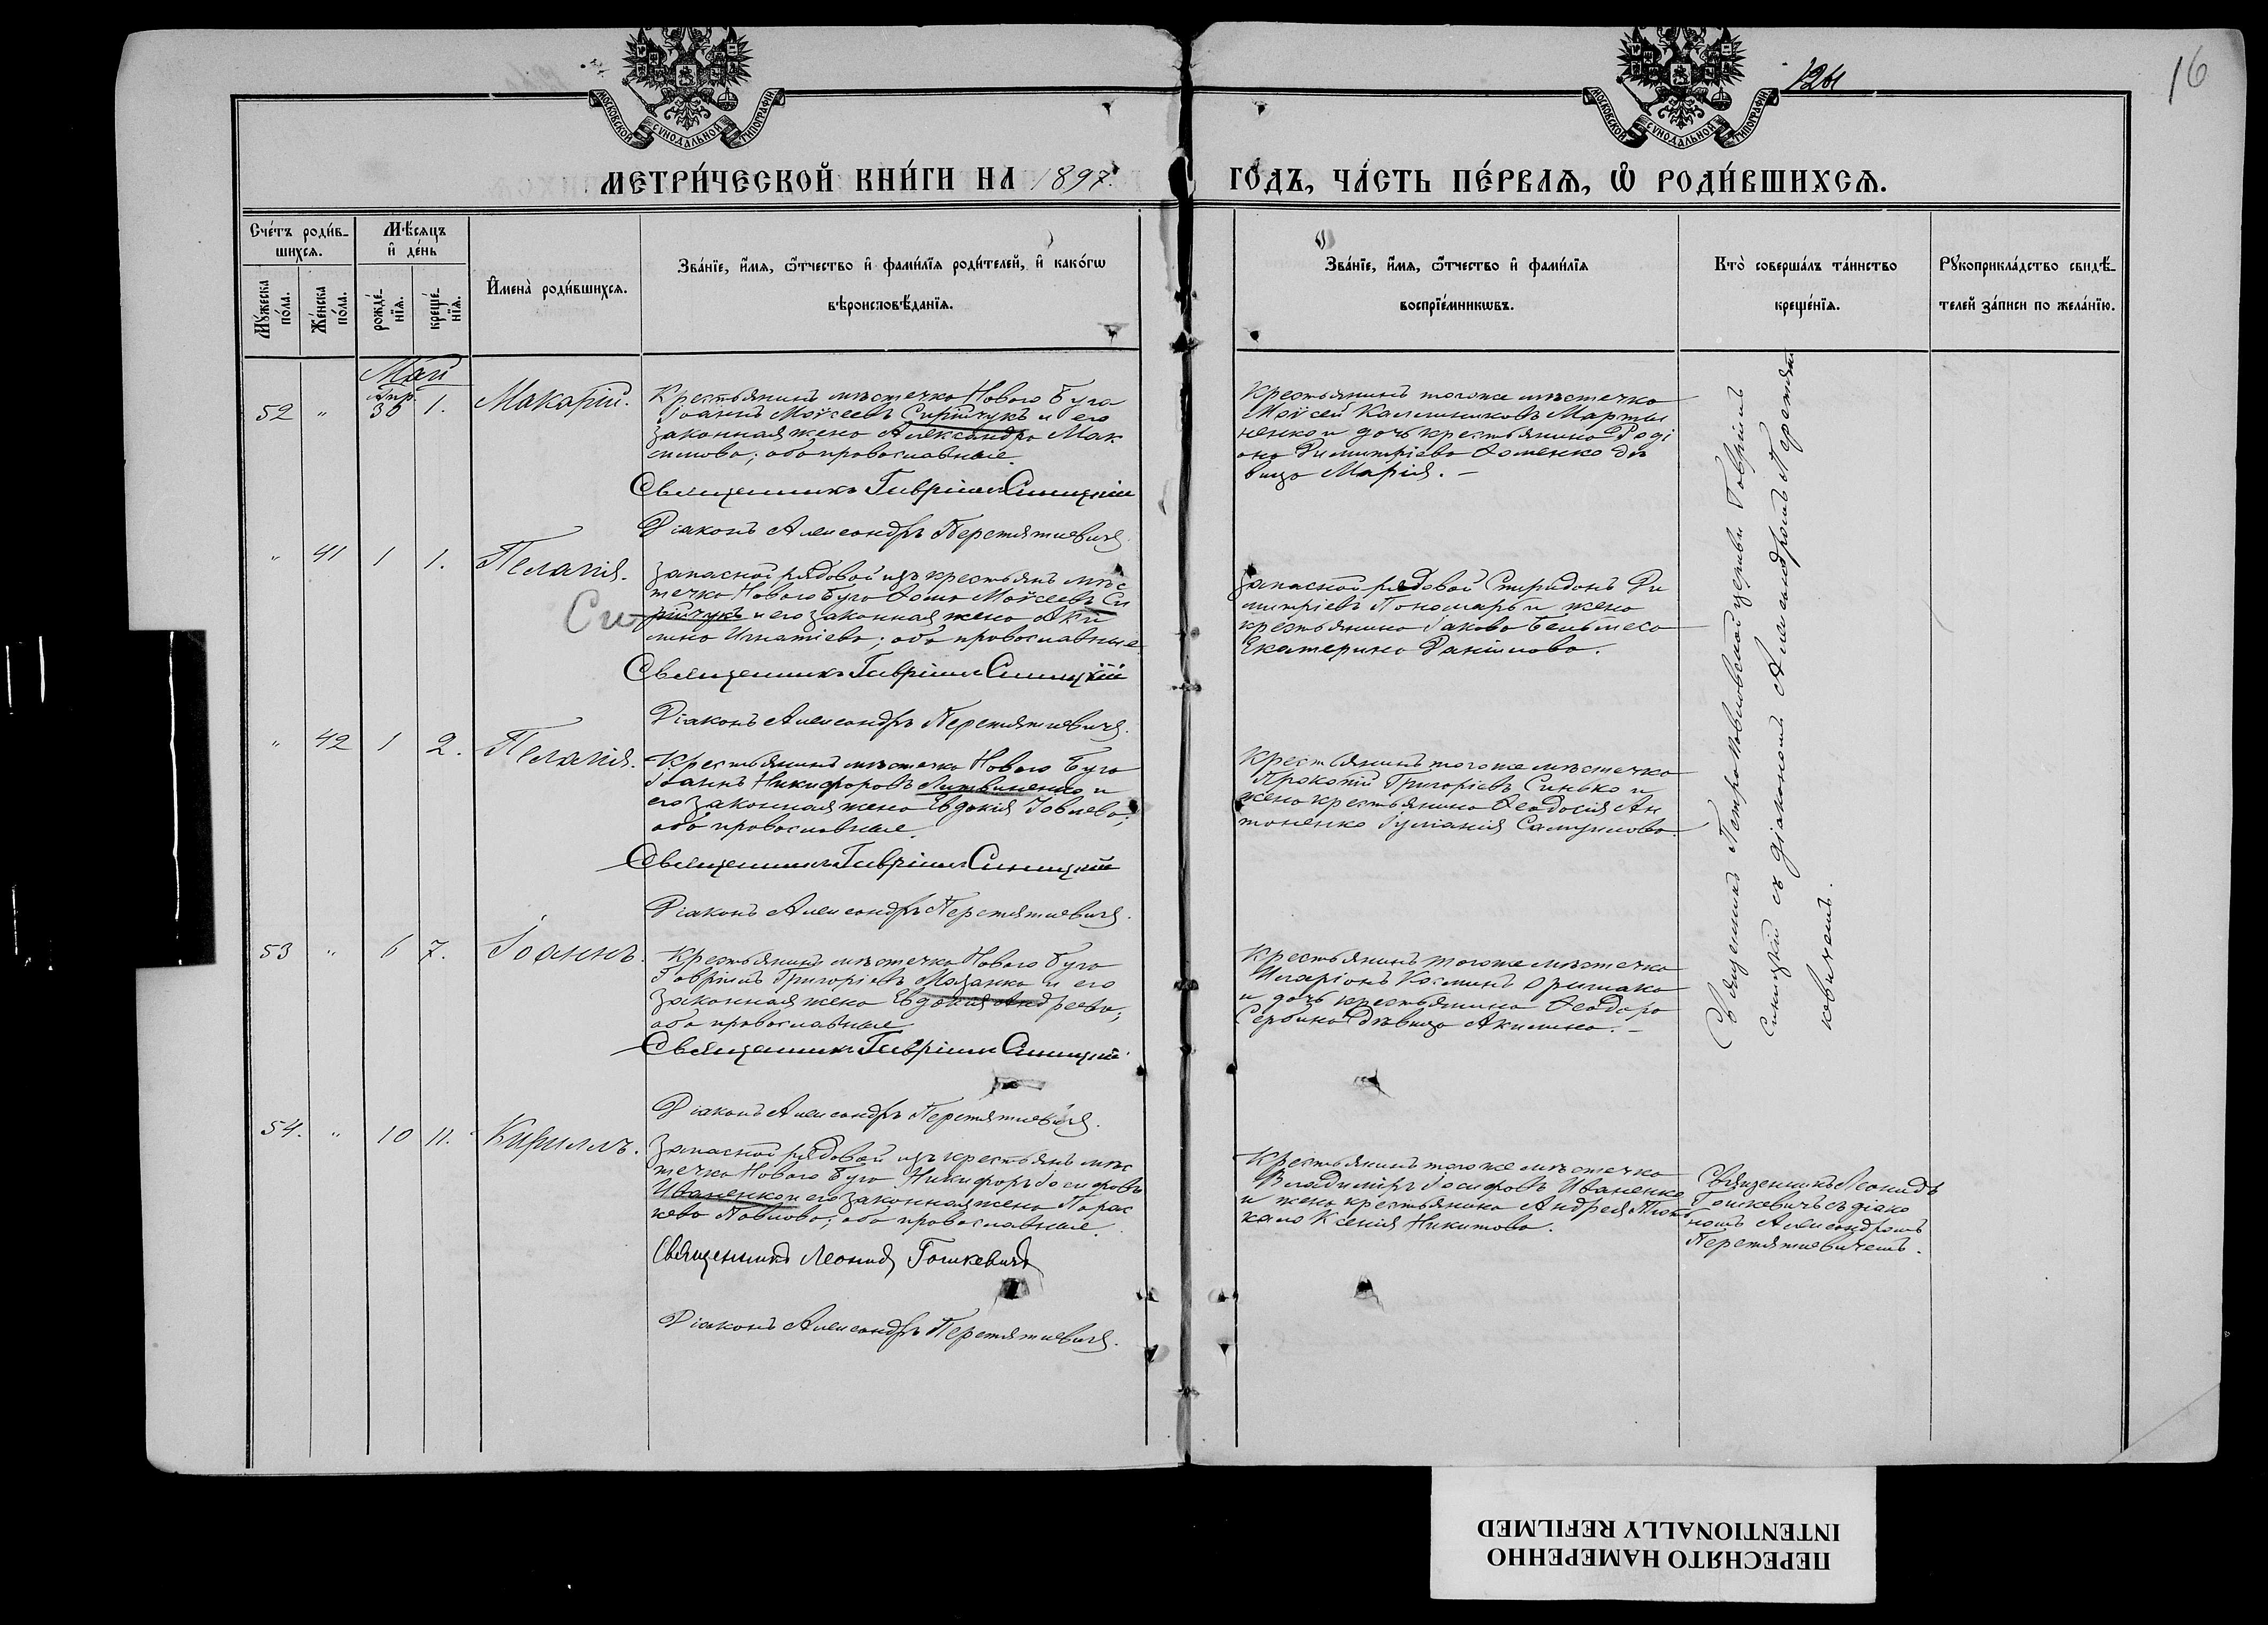 124
16
МОСКОВСКОЙ СУНОДАЛЬНОЙ ТИПОГРАФІИ
МОСКОВСКОЙ СУНОДАЛЬНОЙ ТИПОГРАФІИ
МЕТРИ́ЧЕСКОЙ КНИ́ГИ НА 1897.
ГО́ДЪ, ЧА́СТЬ ПЕ́РВАѦ, Ѡ҆ РОДИ́ВШИХСѦ.
Сче́тъ роди́в-
шихсѧ.
Мѣ́сѧцъ
и҆ де́нь
Мꙋ́жеска
по́ла.
Же́нска
по́ла.
рожде́-
нїѧ.
креще́-
нїѧ.
И҆мена̀ роди́вшихсѧ.
Зва́нїе, и҆́мѧ, ѻ҆́тчество и҆ фами́лїѧ роди́телей, и҆ како́гѡ
вѣроисповѣ́данїѧ.
Зва́нїе, и҆́мѧ, ѻ҆́тчество и҆ фами́лїѧ
воспрїе́мникѡвъ.
Кто̀ соверша́лъ та́инство
креще́нїѧ.
Рꙋкоприкла́дство свидѣ́-
телей за́писи по жела́нїю.
Май
Апр.
52 " 30 1. Макарій.
Крестьянинъ мѣстечка Новаго Буга
Іоаннъ Моѵсеевъ Сиричукъ и его
законная жена Александра Мак
симова; оба православные.
Священникъ Гавріилъ Синицкій
Діаконъ Александръ Перетятковичъ.
Крестьянинъ тогоже мѣстечка
Моѵсей Каллиниковъ Марты
ненко и дочь крестьянина Роді
она Димитріева Хоменко дѣ
вица Марія. –
" 41 1 1. Пелагія.
Запасной рядовой изъ крестьянъ мѣс
течка Новаго Буга Ѳома Моѵсеевъ Си
Си
ричукъ и его законная жена Аки
лина Игнатіева; оба православные
Священникъ Гавріилъ Синицкій
Діаконъ Александръ Перетятковичъ.
Запасной рядовой Спиридонъ Ди
митріевъ Пономарь и жена
крестьянина Іакова Бельмеса
Екатерина Даніилова.
" 42 1 2. Пелагія.
Крестьянинъ мѣстечка Новаго Буга
Іоаннъ Никифоровъ Литвиненко и
его законная жена Евдокія Іовлева;
оба православные.
Священникъ Гавріилъ Синицкій
Діаконъ Александръ Перетятковичъ.
Крестьянинъ тогоже мѣстечка
Прокопій Григоріевъ Синько и
жена крестьянина Ѳеодосія Ан
тоненко Іуліанія Самуилова
53 " 6 7. Іоаннъ.
Крестьянинъ мѣстечка Новаго Буга
Гавріилъ Григоріевъ Мазанко и его
законная жена Евдокія Андреева;
оба православные
Священникъ Гавріилъ Синицкій
Діаконъ Александръ Перетятковичъ.
Крестьянинъ тогоже мѣстечка
Иларіонъ Косминъ
и дочь крестьянина Ѳеодора
Сербина дѣвица Акилина. –
54. " 10 11. Кириллъ.
Запасной рядовой изъ крестьянъ мѣс
течка Новаго Буга Никифоръ Іосифовъ
Иваненко и его законная жена Парас
кева Павлова; оба православные.
Священникъ Леонидъ Гошкевичъ
Діаконъ Александръ Перетятковичъ.
Крестьянинъ тогоже мѣстечка
Владиміръ Іосифовъ Иваненко
и жена крестьянина Андрея
Ксенія Никитова.
Священникъ Петропавловской церкви Гавріилъ
Синицкій съ діакономъ Александромъ Перетят
ковичемъ.
Священникъ Леонидъ
Гошкевичъ съ діако
номъ Александромъ
Перетятковичемъ.
ПЕРЕСНЯТО НАМЕРЕННО
INTENTIONALLY REFILMED